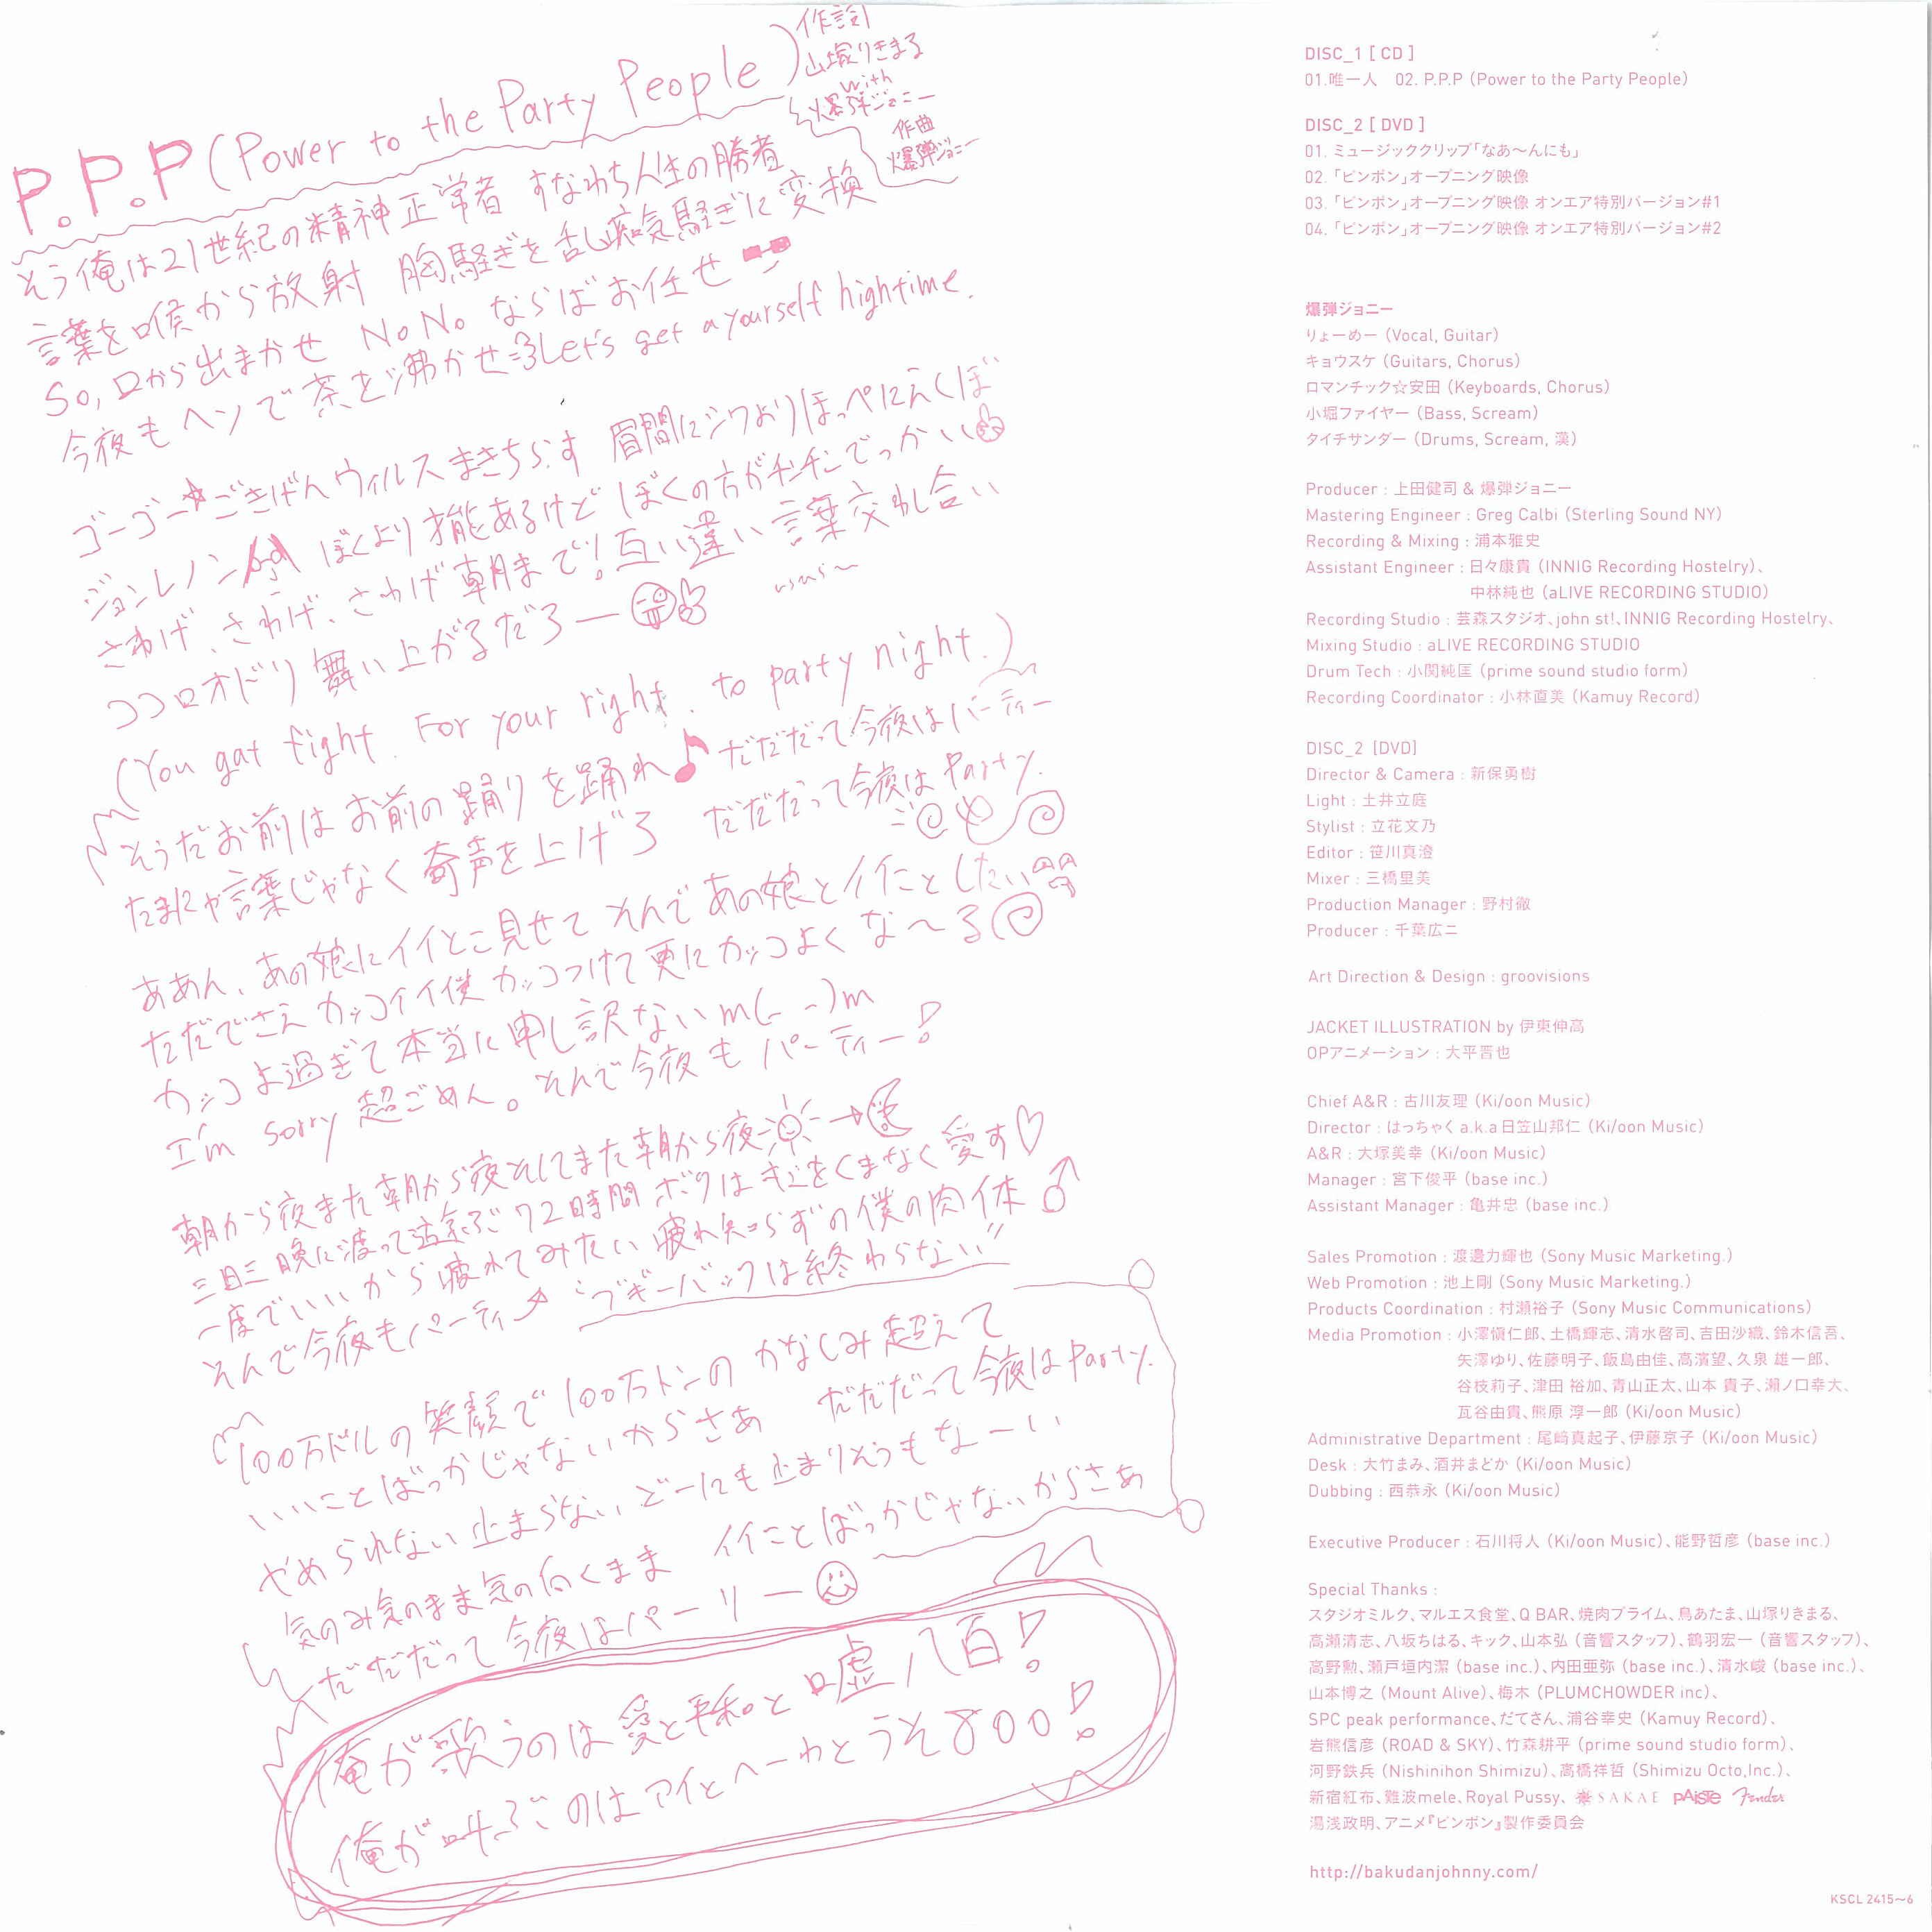 P.P.P (Power to the Party People)
作詞
山塚りきまる
with
爆弾ジョニー
作曲
爆弾ジョニー
そう俺は21世紀の精神正常者 すなわち人生の勝者
言葉を喉から放射 胸騒ぎを舌し痴気騒ぎに変換
So, 口から出まかせ No No ならばお任せ
今夜もヘソで茶を沸かせ Let's get a yourself hightime.
ゴーゴー☆ごきげんウィルスまきちらす 眉間にシワよりほっぺにえくぼ
ジョンレノン ぼくより才能あるけど ぼくの方がチンチンでっかい
さわげ、さわげ、さわげ朝まで!互い違い言葉交わし合い
ココロオドリ舞い上がるだろー
(You gat fight. For your right. to party night.)
そうだお前はお前の踊りを踊れ♪ だだだって今夜はパーティー
たまにゃ言葉じゃなく奇声を上げろ だだだって今夜はParty.
ああん、あの娘にイイとこ見せて そんであの娘とイイことしたい
ただでさえカッコイイ僕 カッコつけて更にカッコよくな〜る
カッコよ過ぎて本当に申し訳ないm(_ _)m
I'm sorry 超ごめん。そんで今夜もパーティー!
朝から夜また朝から夜そしてまた朝から夜
三日三晩に渡って遊ぶ72時間 ボクは君をくまなく愛す♡
一度でいいから疲れてみたい 疲れ知らずの僕の肉体♂
そんで今夜もパーティ "ブギーバックは終わらない"
100万ドルの笑顔で100万トンのかなしみ超えて
いいことばっかじゃないからさあ だだだって今夜はParty.
やめられない止まらない どーにも止まりそうもなーい
気のみ気のまま気の向くまま イイことばっかじゃないからさあ
だだだって今夜はパーリー
俺が歌うのは愛と平和と嘘八百!
俺が叫ぶのはアイとヘーわとうそ800!
DISC_1 [ CD ]
01.唯一人 02. P.P.P (Power to the Party People)
DISC_2 [ DVD ]
01. ミュージッククリップ「なあ〜んにも」
02.「ピンポン」オープニング映像
03.「ピンポン」オープニング映像 オンエア特別バージョン#1
04.「ピンポン」オープニング映像 オンエア特別バージョン#2
爆弾ジョニー
りょーめー (Vocal, Guitar)
キョウスケ (Guitars, Chorus)
ロマンチック☆安田 (Keyboards, Chorus)
小堀ファイヤー (Bass, Scream)
タイチサンダー (Drums, Scream, 漢)
Producer : 上田健司 & 爆弾ジョニー
Mastering Engineer : Greg Calbi (Sterling Sound NY)
Recording & Mixing : 浦本雅史
Assistant Engineer : 日々康貴 (INNIG Recording Hostelry)、
中林純也 (aLIVE RECORDING STUDIO)
Recording Studio : 芸森スタジオ、john st!、INNIG Recording Hostelry、
Mixing Studio : aLIVE RECORDING STUDIO
Drum Tech : 小関純匡 (prime sound studio form)
Recording Coordinator : 小林直美 (Kamuy Record)
DISC_2 [DVD]
Director & Camera : 新保勇樹
Light : 土井立庭
Stylist : 立花文乃
Editor : 笹川真澄
Mixer : 三橋里美
Production Manager : 野村徹
Producer : 千葉広二
Art Direction & Design : groovisions
JACKET ILLUSTRATION by 伊東伸高
OPアニメーション : 大平晋也
Chief A&R : 古川友理 (Ki/oon Music)
Director : はっちゃく a.k.a 日笠山邦仁 (Ki/oon Music)
A&R : 大塚美幸 (Ki/oon Music)
Manager : 宮下俊平 (base inc.)
Assistant Manager : 亀井忠 (base inc.)
Sales Promotion : 渡邊力輝也 (Sony Music Marketing.)
Web Promotion : 池上剛 (Sony Music Marketing.)
Products Coordination : 村瀬裕子 (Sony Music Communications)
Media Promotion : 小澤愼仁郎、土橋輝志、清水啓司、吉田沙織、鈴木信吾、
矢澤ゆり、佐藤明子、飯島由佳、高濱望、久泉 雄一郎、
谷枝莉子、津田 裕加、青山正太、山本 貴子、瀬ノ口幸大、
瓦谷由貴、熊原 淳一郎 (Ki/oon Music)
Administrative Department : 尾﨑真起子、伊藤京子 (Ki/oon Music)
Desk : 大竹まみ、酒井まどか (Ki/oon Music)
Dubbing : 西恭永 (Ki/oon Music)
Executive Producer : 石川将人 (Ki/oon Music)、能野哲彦 (base inc.)
Special Thanks :
スタジオミルク、マルエス食堂、Q BAR、焼肉プライム、鳥あたま、山塚りきまる、
高瀬清志、八坂ちはる、キック、山本弘 (音響スタッフ)、鶴羽宏一 (音響スタッフ)、
高野勲、瀬戸垣内潔 (base inc.)、内田亜弥 (base inc.)、清水峻 (base inc.)、
山本博之 (Mount Alive)、梅木 (PLUMCHOWDER inc)、
SPC peak performance、だてさん、浦谷幸史 (Kamuy Record)、
岩熊信彦 (ROAD & SKY)、竹森耕平 (prime sound studio form)、
河野鉄兵 (Nishinihon Shimizu)、高橋祥哲 (Shimizu Octo,Inc.)、
新宿紅布、難波mele、Royal Pussy、 SAKAE PAiSTe Fender
湯浅政明、アニメ『ピンポン』製作委員会
http://bakudanjohnny.com/
KSCL 2415〜6